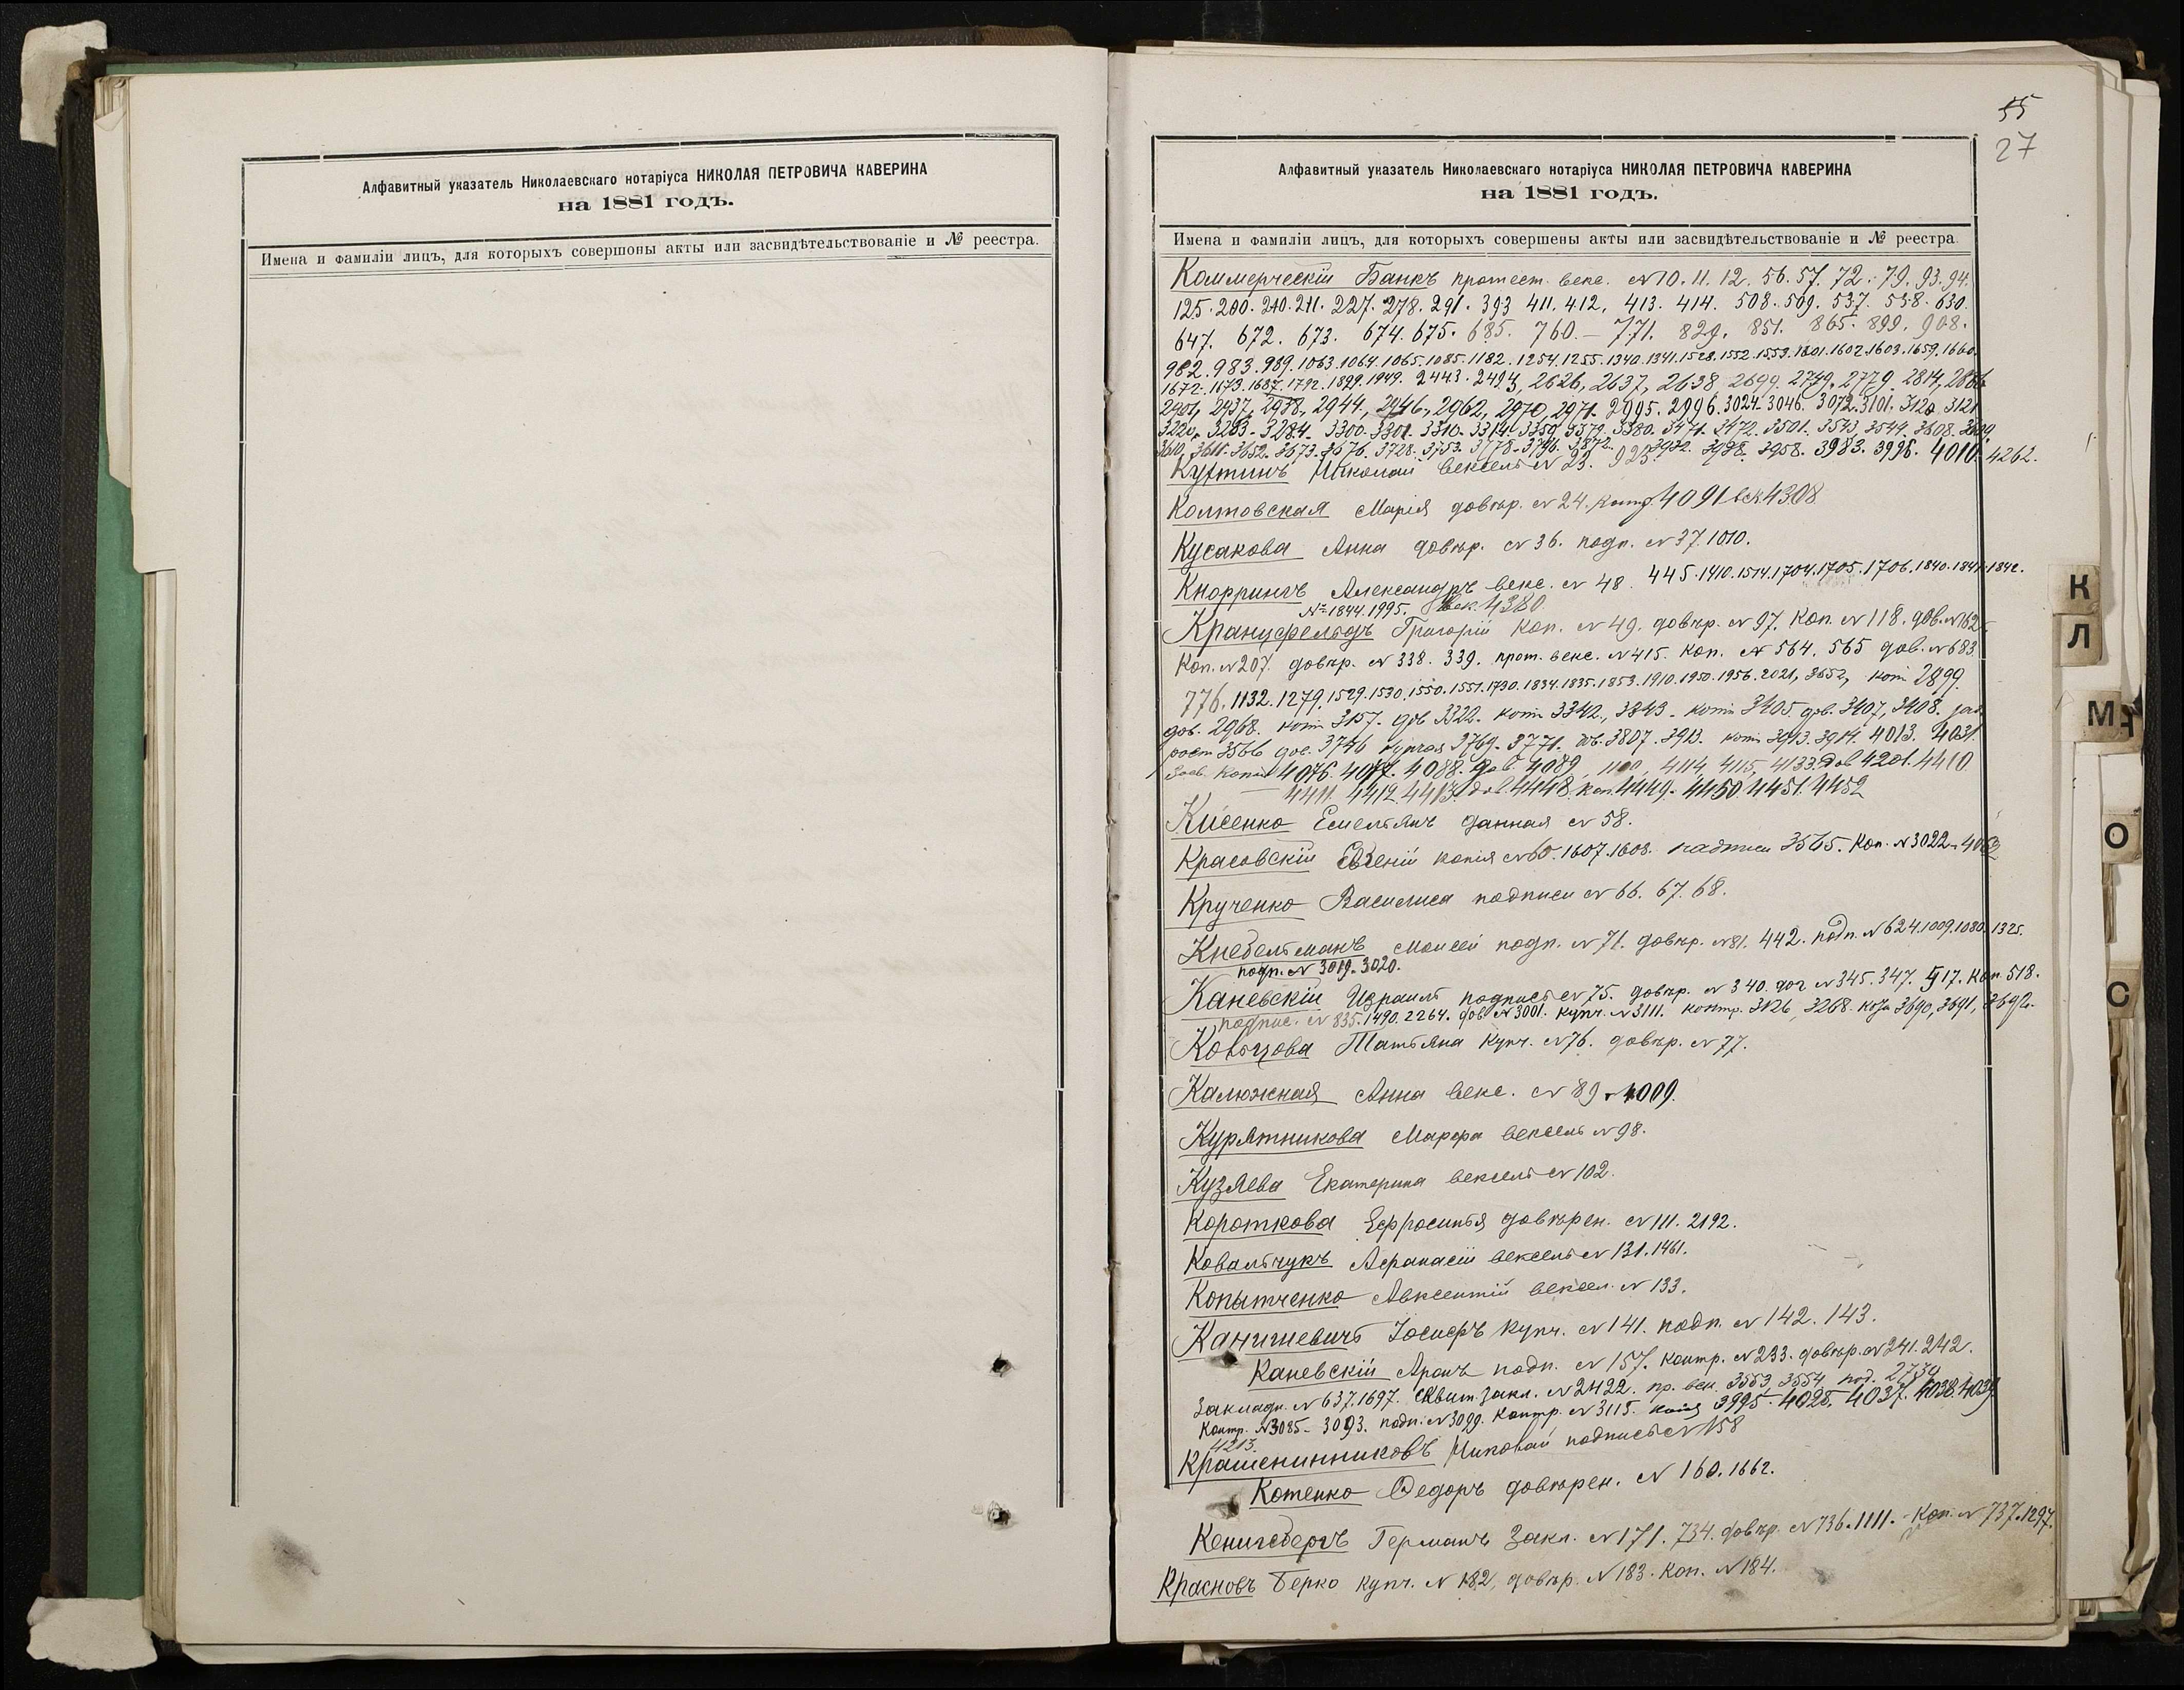 Алфавитный указатель Николаевскаго нотаріуса НИКОЛАЯ ПЕТРОВИЧА КАВЕРИНА
на 1881 годъ.
Имена и фамиліи лицъ, для которыхъ совершоны акты или засвидѣтельствованіе и № реестра.
55
27
Алфавитный указатель Николаевскаго нотаріуса НИКОЛАЯ ПЕТРОВИЧА КАВЕРИНА
на 1881 годъ.
Имена и фамиліи лицъ, для которыхъ совершены акты или засвидѣтельствованіе и № реестра.
Коммерческій Банкъ протест. векс. №10. 11. 12. 56. 57. 72. 79. 93. 94.
125. 200. 210. 211. 227. 278. 291. 393 411. 412. 413. 414. 508. 509. 537. 538. 630.
647. 672. 673. 674. 675. 685. 760. – 771. 829. 851. 865. 899. 908.
982. 983. 989. 1063. 1064. 1065. 1085. 1182. 1254. 1255. 1340. 1341. 1528. 1552. 1553. 1601. 1602. 1603. 1659. 1660.
1672. 1673. 1687. 1792. 1899. 1949. 2443. 2493, 2626, 2637, 2638 2699. 2749, 2779. 2814, 2886
2901, 2937, 2938, 2944, 2946, 2962, 2970, 2971. 2995. 2996. 3024. 3046. 3072. 3101. 3120. 3121
3220. 3283. 3284. 3300. 3301. 3310. 3314. 3359. 3379. 3380. 3471. 3472. 3501. 3543. 3544. 3608. 3609.
3610. 3611. 3652. 3673. 3676. 3728. 3753. 3778. 3796. 3872. 3932. 3938. 3958. 3983. 3996. 4010. 4262.
Николай вексель № 23. 925.
Колтовская Марія довѣр. № 24. контр. 4091 век 4308
Кусакова Анна довѣр. № 36. подп. № 37. 1010.
Кноррингъ Александръ векс. № 48. 445. 1410. 1514. 1704. 1705. 1706. 1840. 1841. 1842.
№ 1844. 1995. Век. 4380.
Кранцфельдъ Григорій коп. № 49. довѣр. № 97. коп. № 118. дов. № 162
Коп. № 207. довѣр. № 338. 339. прот. векс. № 415. коп. № 564. 565 дов. № 683.
776. 1132. 1279. 1529. 1530. 1550. 1551. 1730. 1834. 1835. 1853. 1910. 1950. 1956. 2021, 2652, коп 2899.
дов. 2968. копі 3157. дов 3322. копі 3342, 3843. копі 3405. дов. 3407, 3408.
3566 дов. 3746 купчая 3769. 3771. дов. 3807. 3913. копі 3913. 3914. 4013. 4031.
копія 4076. 4077. 4088. дов. 4089, 4114, 4115, 4133. дов 4201. 4410.
4411. 4412. 4413. дов. 4448. коп. 4449. 4450. 4451. 4452
Кисенко Емельянъ данная № 58.
Красовскій Евгеній копія № 60. 1607. 1608. 3565. Коп. № 3022.
Крученко Василиса подписи № 66. 67. 68.
Кнебельманъ Моисей подп. № 71. довѣр. № 81. 442. подп. № 624. 1009. 1080. 1325.
подп. № 3019. 3020.
Каневскій Израиль подпись № 75. довѣр. № 340. дог № 345. 347. 517. коп. 518.
подпис. № 835. 1490. 2264. дов № 3001. купч. № 3111. контр. 3126, 3268. 3690, 3691, 3692.
Ковъцова Татьяна купч. № 76. довѣр. № 77.
Калюжная Анна векс. № 89. 4009.
Курятникова Марфа вексель № 98.
Кузяева Екатерина вексель № 102.
Короткова Ефросинья довѣрен. № 111. 2192.
Ковальчукъ Афанасій вексель № 131. 1461.
Копытченко Авксентій вексел. № 133.
Канигиевичъ Іосифъ купч. № 141. подп. № 142. 143.
Каневскій Аронъ подп. № 157. контр. № 233. довѣр. № 241. 242.
Закладн. № 637. 1697. Квит. закл. № 2422. пр. век. 3553. 3554. под. 2730
Контр. № 3085. 3093. подп. № 3099. контр. № 3115. копія 3995. 4028. 4037. 4038. 4039.
4213.
Крашенинниковъ Николай подпись № 158
Котенко Ѳедоръ довѣрен. № 160. 1662.
Кенигсбергъ Германъ Закл. № 171. 734. довѣр. № 736. 1111. Коп. № 737. 1297.
Красновъ Берко купч. № 182, довѣр. № 183. Коп. № 184.
К
Л
М
О
С